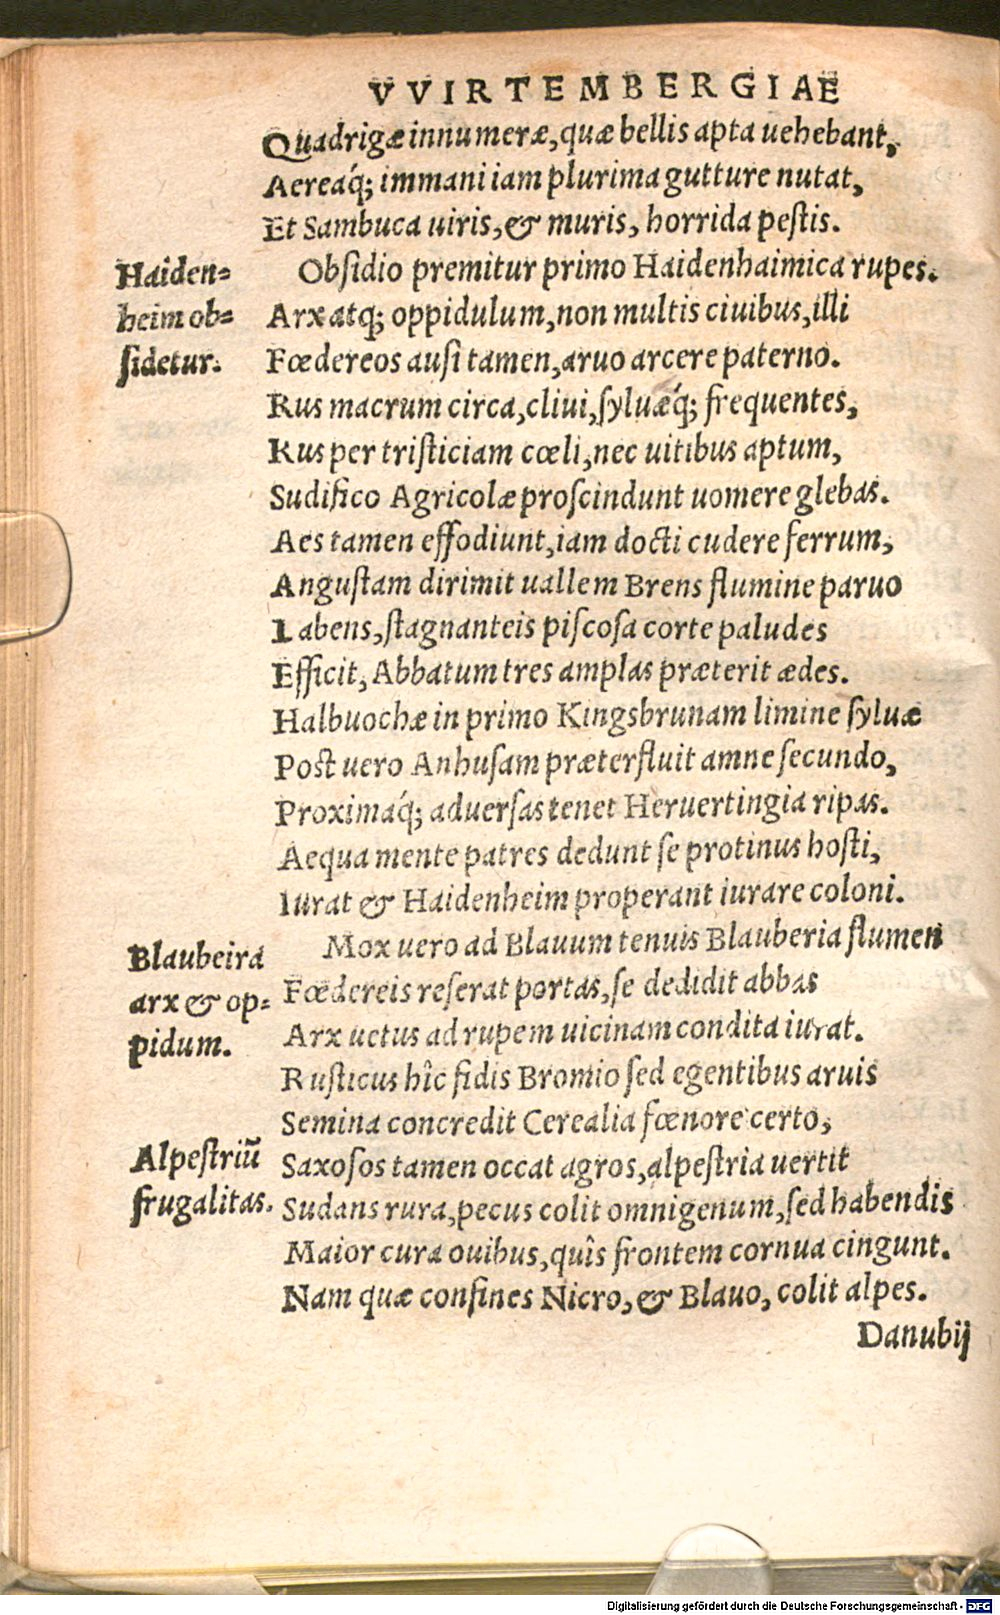 VVIRTEMBERGIAE
Quadrigæ innumeræ, quæ bellis apta uehebant,
Aereaq́; immani iam plurima gutture nutat,
Et Sambuca uiris, & muris, horrida pestis.
Haiden=
heim ob=
sidetur.
Obsidio premitur primo Haidenhaimica rupes.
Arx atq; oppidulum, non multis ciuibus, illi
Fœdereos ausi tamen, aruo arcere paterno.
Rus macrum circa, cliui, syluæq́; frequentes,
Rus per tristiciam cœli, nec uitibus aptum,
Sudifico Agricolæ proscindunt uomere glebas.
Aes tamen effodiunt, iam docti cudere ferrum,
Angustam dirimit uallem Brens flumine paruo
Labens, stagnanteis piscosa corte paludes
Efficit, Abbatum tres amplas præterit ædes.
Halbuochæ in primo Kingsbrunam limine syluæ
Post uero Anhusam præterfluit amne secundo,
Proximaq́; aduersas tenet Heruertingia ripas.
Aequa mente patres dedunt se protinus hosti,
Iurat & Haidenheim properant iurare coloni.
Blaubeira
arx & op=
pidum.
Mox uero ad Blauum tenuis Blauberia flumen
Fœdereis reserat portas, se dedidit abbas
Arx uetus ad rupem uicinam condita iurat.
Rusticus hîc fidis Bromio sed egentibus aruis
Semina concredit Cerealia fœnore certo,
Alpestriũ
frugalitas.
Saxosos tamen occat agros, alpestria uertit
Sudans rura, pecus colit omnigenum, sed habendis
Maior cura ouibus, quîs frontem cornua cingunt.
Nam quæ confines Nicro, & Blauo, colit alpes.
Danubij
Digitalisierung gefördert durch die Deutsche Forschungsgemeinschaft - DFG